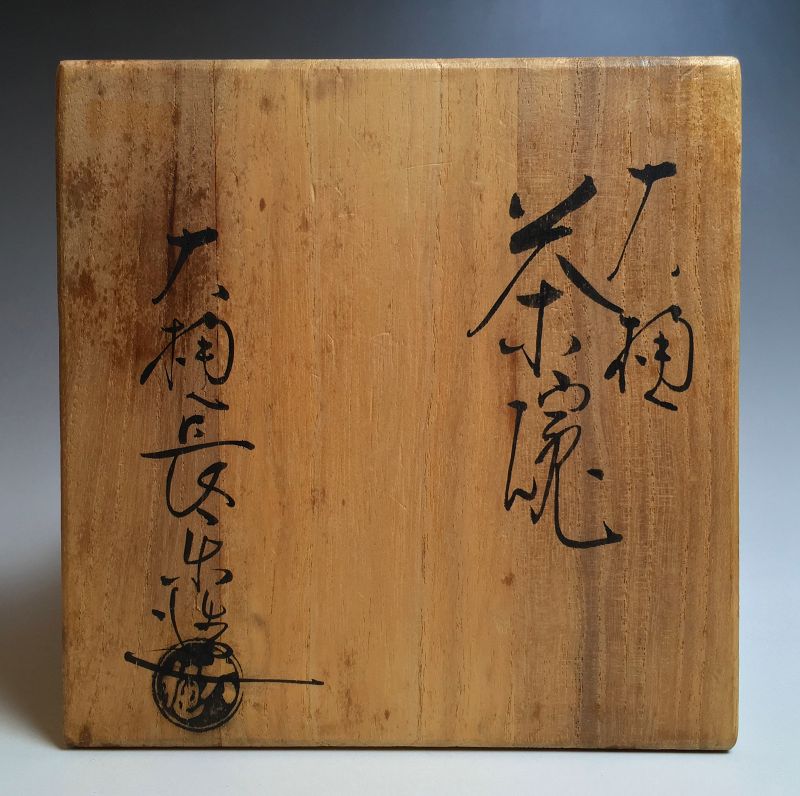 大樋
茶碗
大樋長左衛門造